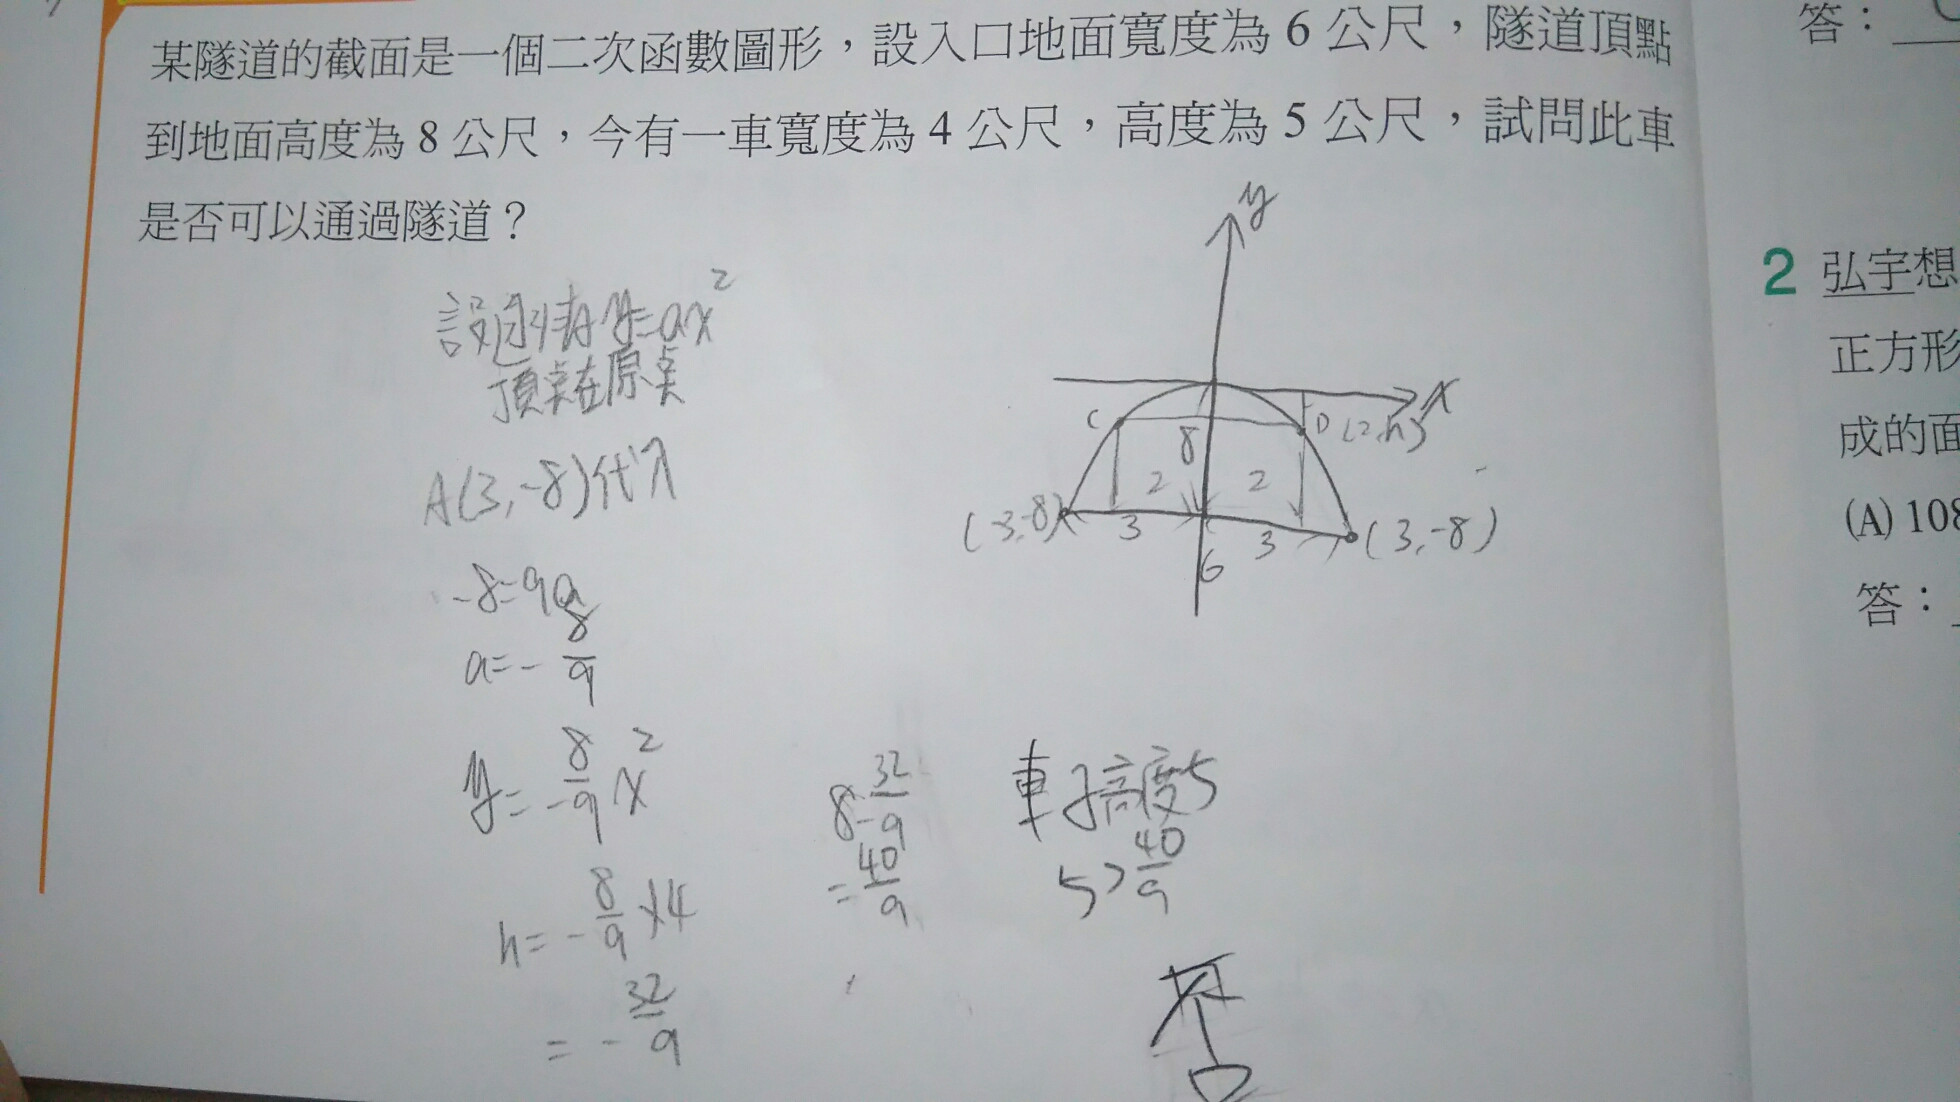 某隧道的截面是一個二次函數圖形，設入口地面寬度為 6 公尺，隧道頂點
到地面高度為 8 公尺，今有一車寬度為 4 公尺，高度為 5 公尺，試問此車
是否可以通過隧道？
y
x
C
D (2,h)
8
2
2
(-3,-8)
3
3
(3,-8)
6
y=ax²
頂點在原點
A(3,-8)代入
-8=9a
a=-8/9
y=-8/9x²
h=-8/9×4
=-32/9
8-32/9
=40/9
車子高度5
5>40/9
否
答：
2 弘宇想
正方形
成的面
(A) 108
答：